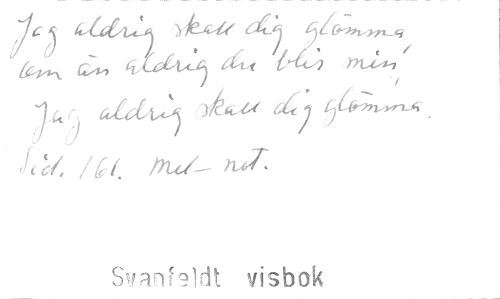 Jag aldrig skall dig glömma,
om än aldrig du blir min,
Jag aldrig skall dig glömma.
Sid. 161. Mel- not.
Svanfeldt visbok